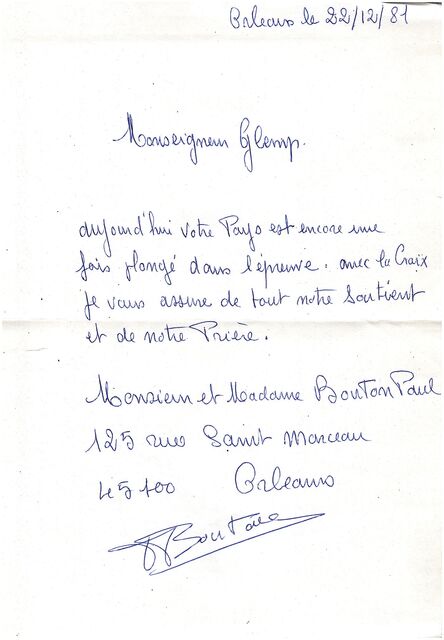 Orleans le 22/12/81
Monseigneur Glemp.
aujourd'hui votre Pays est encore une
fois plongé dans l'épreuve. avec la Croix
Je vous assure de tout notre Soutient
et de notre Prière.
Monsieur et Madame Bouton Paul
125 rue Saint Marceau
45100 Orleans
Bouton